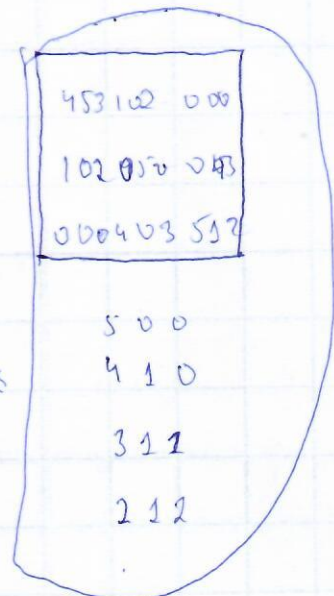 453 102 000
102 050 043
000 403 512
5 0 0
4 1 0
3 1 1
2 1 2